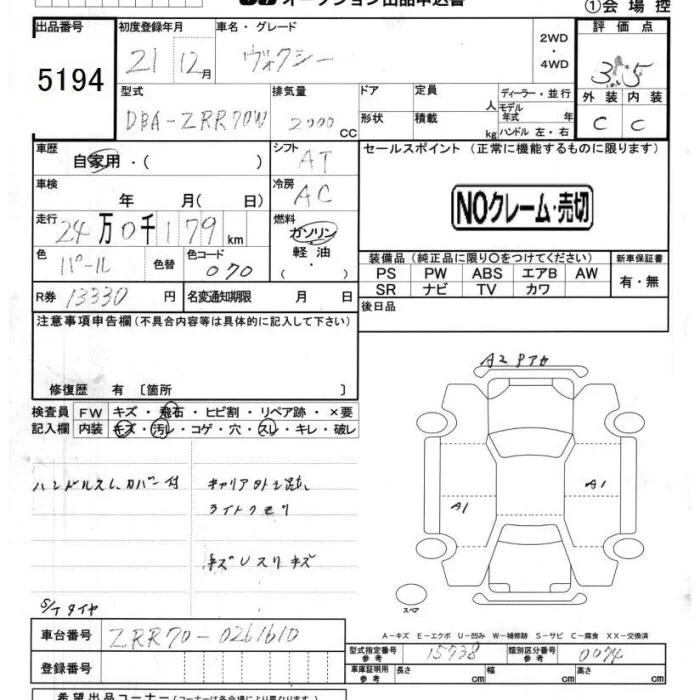 オークション出品申込書
①会場控
出品番号 初度登録年月 車名・グレード 2WD・4WD 評価点
5194 21 12月 ヴォクシー 3.5
型式 排気量 ドア 定員 人 ディーラー・並行
DBA-ZRR70W 2000 CC 形状 積載 kg モデル年式 年 ハンドル 左・右
外装 内装
C C
車歴 自家用・( ) シフト AT
セールスポイント(正常に機能するものに限ります)
車検 年 月( 日) 冷房 AC
NOクレーム・売切
走行 24万0千179km 燃料 ガソリン・軽油・( )
色 パール 色替 色コード 070
装備品(純正品に限り○をつけてください) 新車保証書
PS PW ABS エアB AW 有・無
SR ナビ TV カワ
R券 13330円 名変通知期限 月 日
後日品
注意事項申告欄(不具合内容等は具体的に記入して下さい)
修復歴 有[箇所 ]
検査員記入欄
FW キズ・飛石・ヒビ割・リペア跡・×要
内装 キズ・汚レ・コゲ・穴・スレ・キレ・破レ
ハンドルスレ、カバー付
キャリア外し跡、
ライトクモリ
キズUスリキズ
S/Tタイヤ
A2 Pアカ
A1
A1
スペア
A-キズ E-エクボ U-凹み W-補修跡 S-サビ C-腐食 XX-交換済
車台番号 ZRR70-0261610
型式指定番号 参考 15738 類別区分番号 参考 0074
登録番号
車庫証明用 参考 長さ cm 幅 cm 高さ cm
希望出品コーナー(コーナーは各会場により異なります)